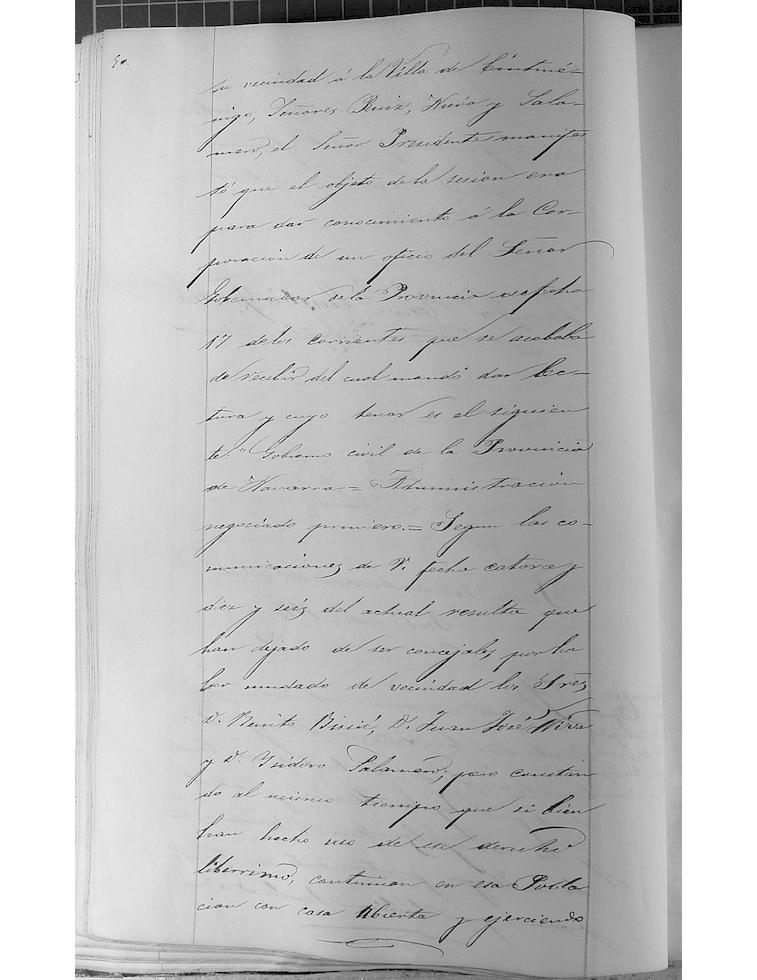 su vecindad á la Villa de Cintrué-
nigo, Señores Ruiz, Nuño y Sala-
mero, el Señor Presidente manifes
tó que el objeto de la sesion era
para dar conocimiento á la Cor-
poracion de un oficio del Señor
Gobernador de la Provincia su fecha
17. de los corrientes que se acababa
de recibir del cual mandó dar lec-
tura y cuyo tenor es el siguien
te." Gobierno civil de la Provincia
de Navarra.= Administración
negociado primero.= Segun las co-
municaciones de V. fecha catorce y
diez y seis del actual resulta que
han dejado de ser concejales por ha
ber mudado de vecindad los Sres
D. Benito D. Juan José
y D. Ysidoro Salamero; pero constan
do al mismo tiempo que si bien
han hecho uso de ese derecho
liberrimo, continuan en esa Pobla
cion con casa abierta y ejerciendo